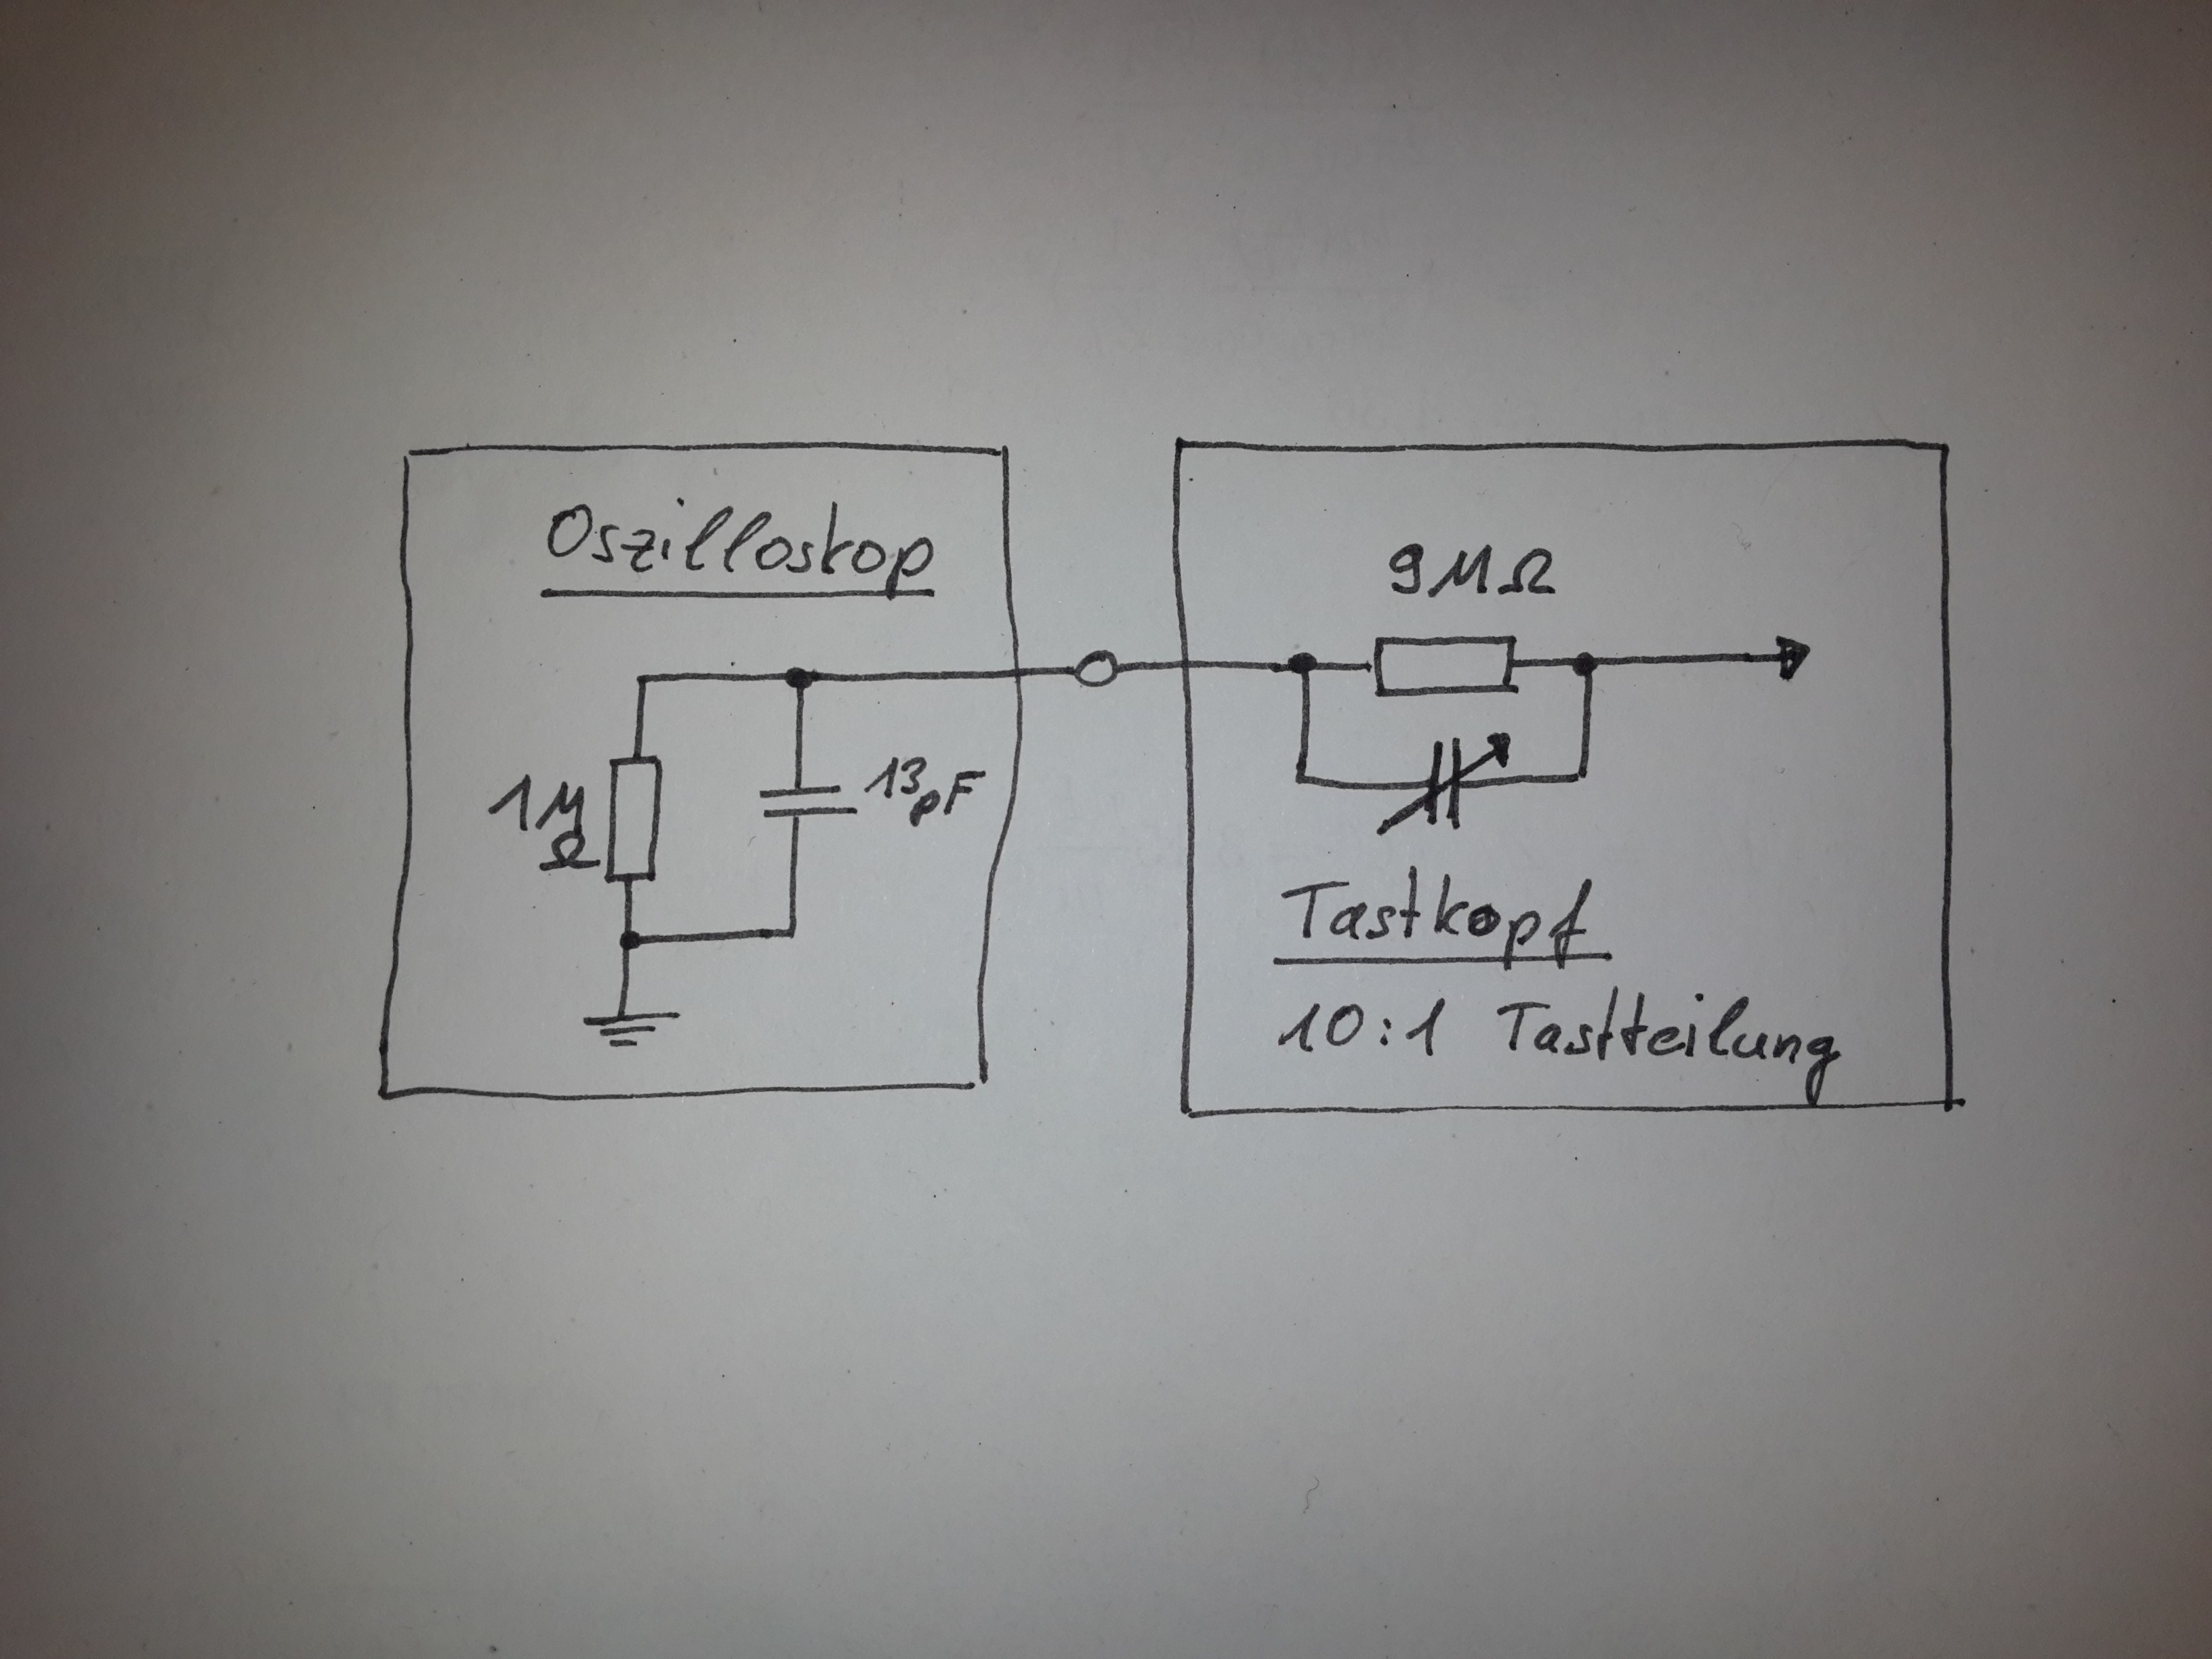 Oszilloskop
9MΩ
1M
Ω
13pF
Tastkopf
10:1 Tastteilung